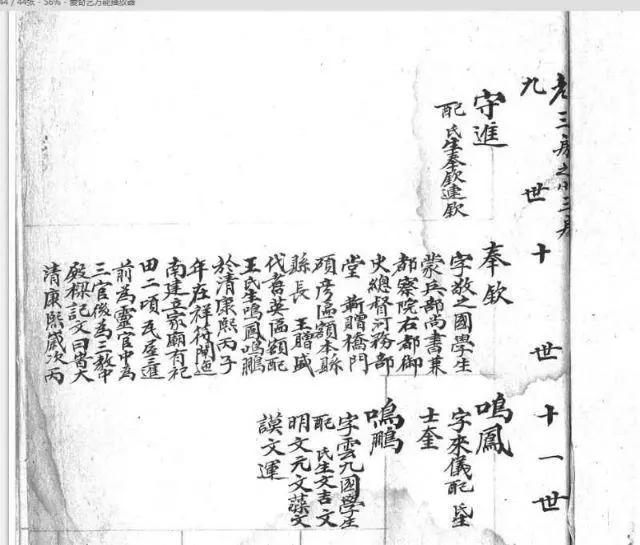 44 / 44张 · 56% · 爱奇艺万能播放器
老三房之小三房
九世
守進
配 氏生奉欽連欽
十世
奉欽
字敬之國學生
蒙兵部尚書兼
都察院右都御
史總督河務部
堂 靳贈橋門
碩彦匾額本縣
縣長 王贈盛
代耆英匾額配
王氏生鳴鳳鳴鵬
於清康熙丙子
年在祥符
南建立家廟有祀
田二頃瓦屋三進
前為靈官中為
三官後為三教中
殿樑記文曰峕大
清康熙歲次丙
十一世
鳴鳳
字來儀配 氏生
士奎
鳴鵬
字雲九國學生
配 氏生文吉文
明文元文藻文
謨文運